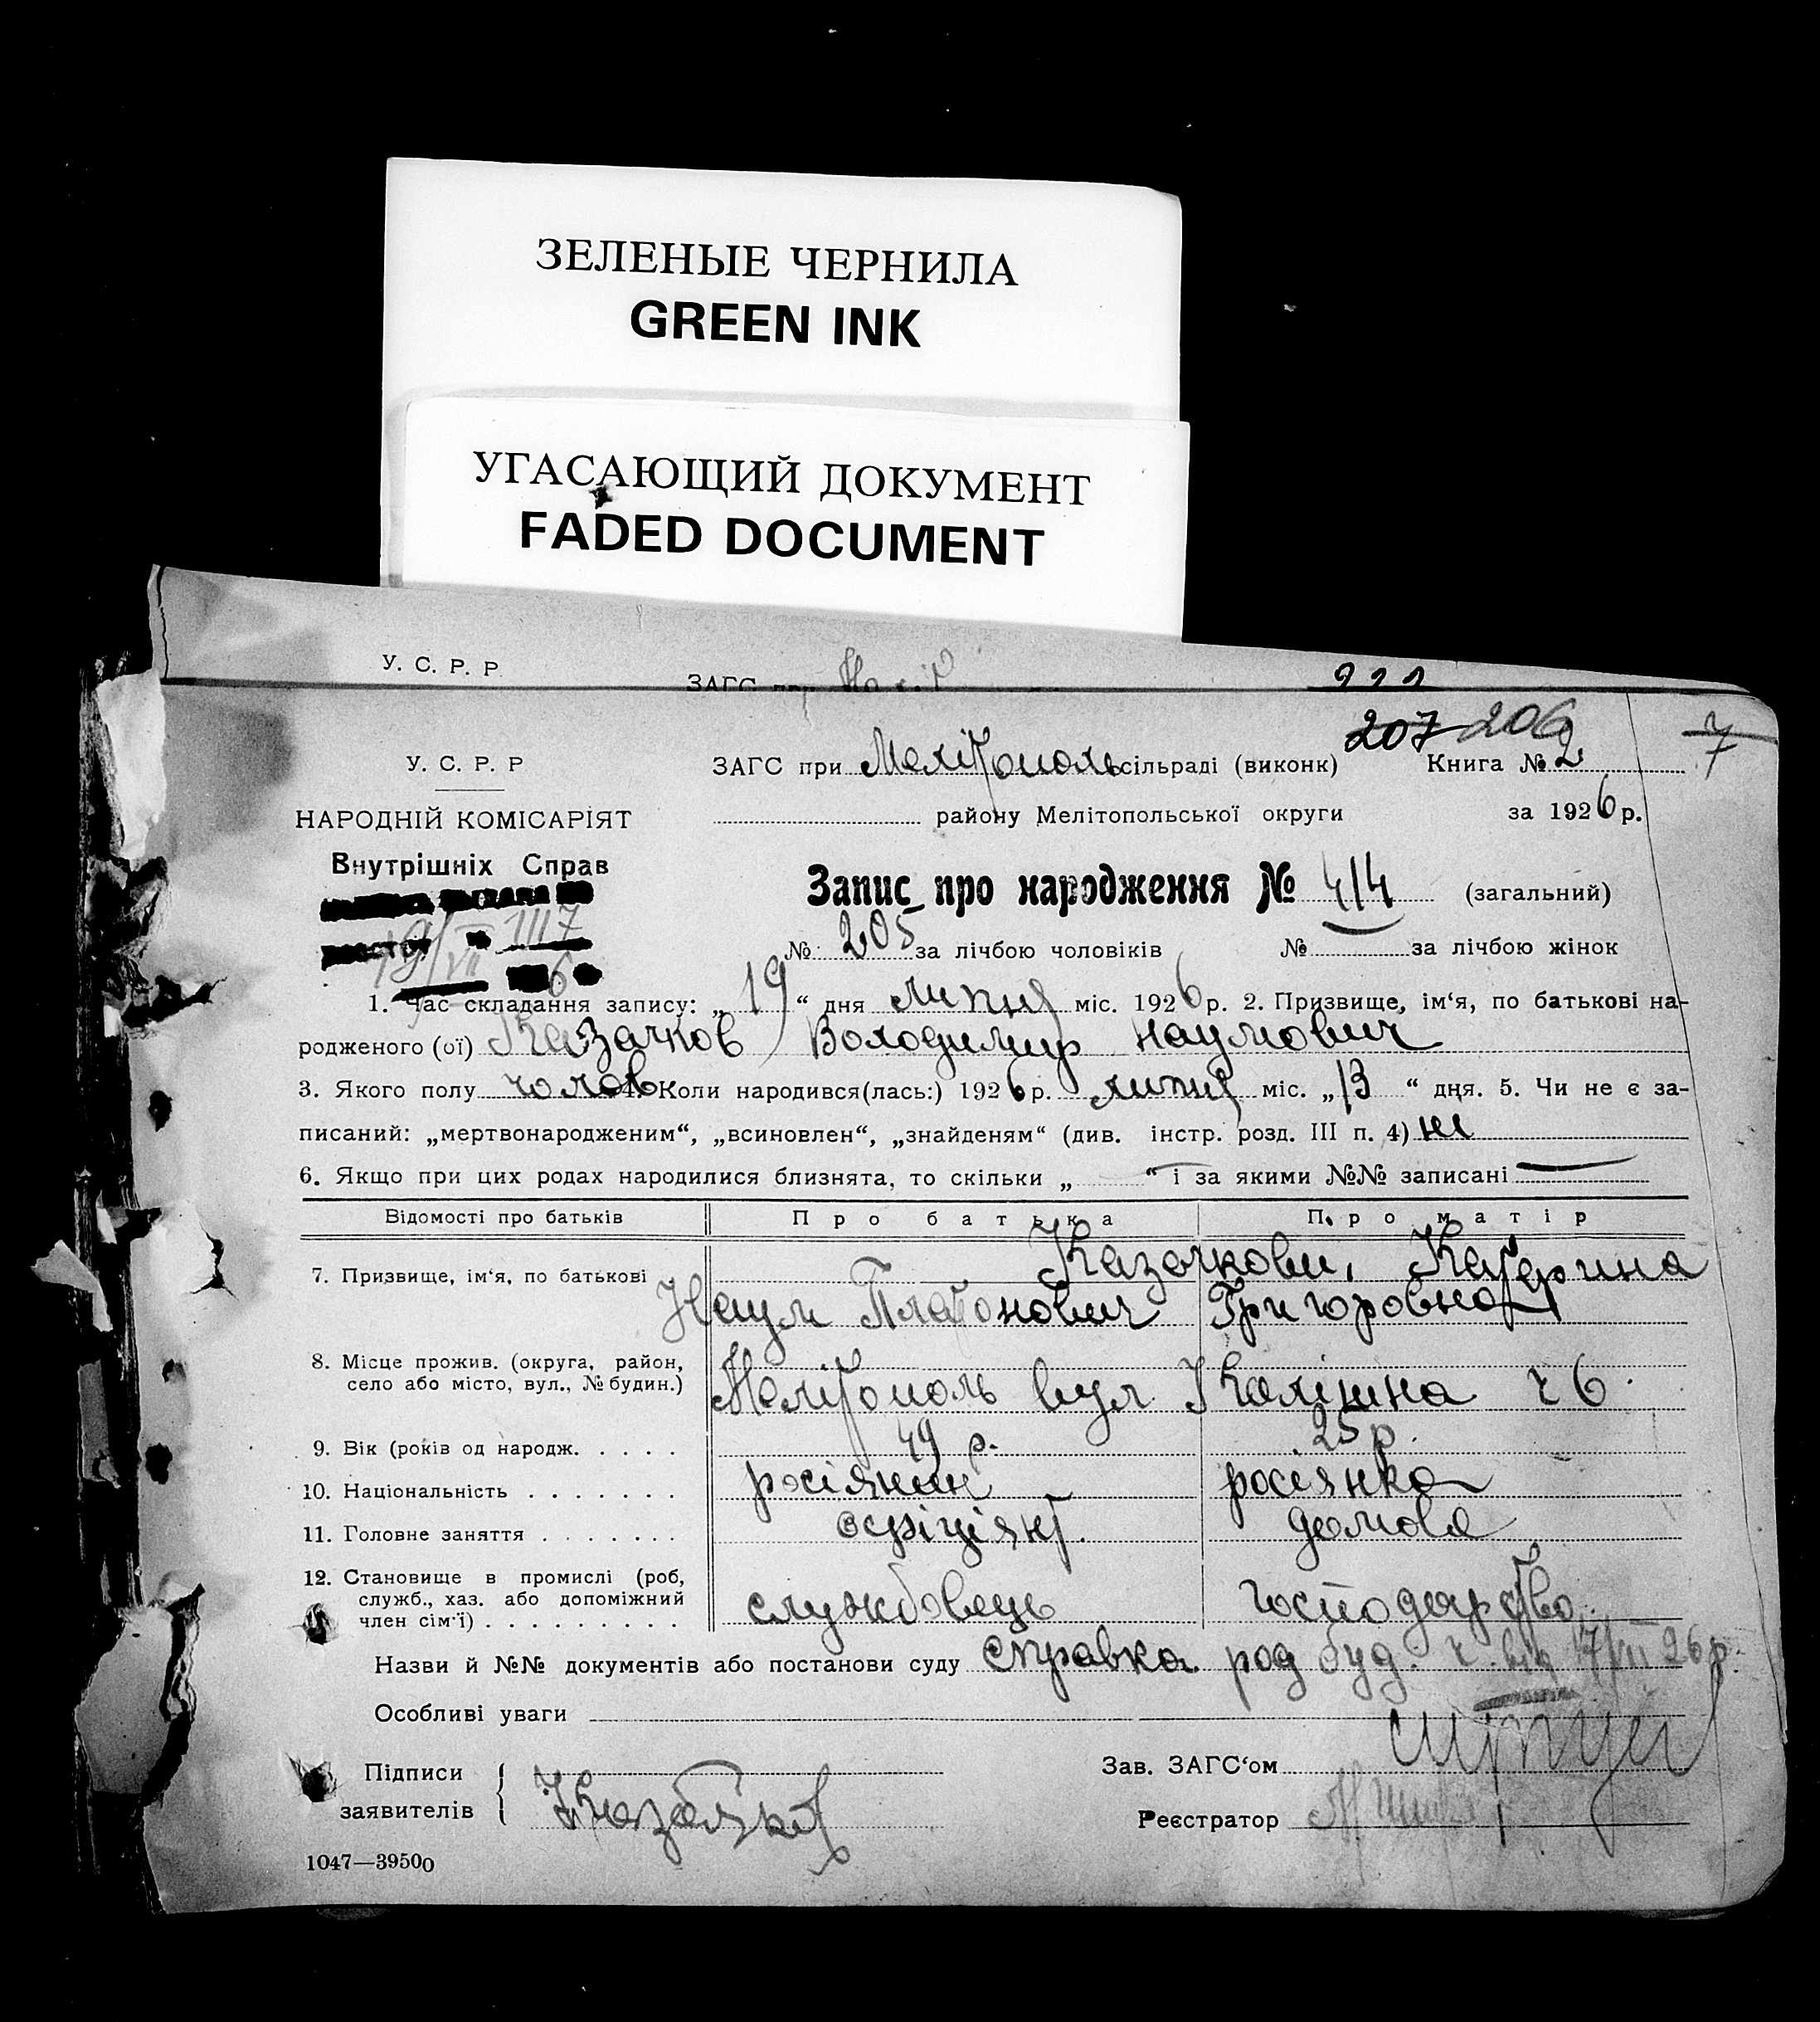 ЗЕЛЕНЫЕ ЧЕРНИЛА
GREEN INK
УГАСАЮЩИЙ ДОКУМЕНТ
FADED DOCUMENT
У. С. Р. Р.
ЗАГС при
207 206 7
У. С. Р. Р ЗАГС при Мелітополь сільраді (виконк) Книга № 2
НАРОДНІЙ КОМІСАРІЯТ районy Мелітопольської округи за 1926 р.
Внутрішніх Справ
Запис про народження № 414 (загальний)
№ 205 за лічбою чоловіків № за лічбою жінок
1. Час складання запису: „19“ дня липня міс. 1926 р. 2. Призвище, ім‘я, по батькові на-
родженого (ої) Казачков Володимир Наумович
3. Якого полу чолов 4. Коли народився(лась:) 1926 р. липня міс. „13“ дня. 5. Чи не є за-
писаний: „мертвонародженим“, „всиновлен“, „знайденям“ (див. інстр. розд. III п. 4) ні
6. Якщо при цих родах народилися близнята, то скільки „ “ і за якими №№ записані
Відомості про батьків Про батька Про матір
7. Призвище, ім‘я, по батькові Казачкови, Катерина
Наум Платонович Григоровна
8. Місце прожив. (округа, район,
село або місто, вул., № будин.) Мелітополь вул Калініна ч 6
9. Вік (років од народж. . . . . 49 р. 25 р.
10. Національність . . . . . . . росіянин росіянка
11. Головне заняття . . . . . . . офіціянт домове
12. Становище в промислі (роб,
служб., хаз. або допоміжний службовець господарство
член сім‘ї) . . . . . . . . .
Назви й №№ документів або постанови суду справка род буд. ч. від 17/VII 26 р.
Особливі уваги
Зав. ЗАГС‘ом
Підписи
заявителів Казачков
Реєстратор
1047—39500